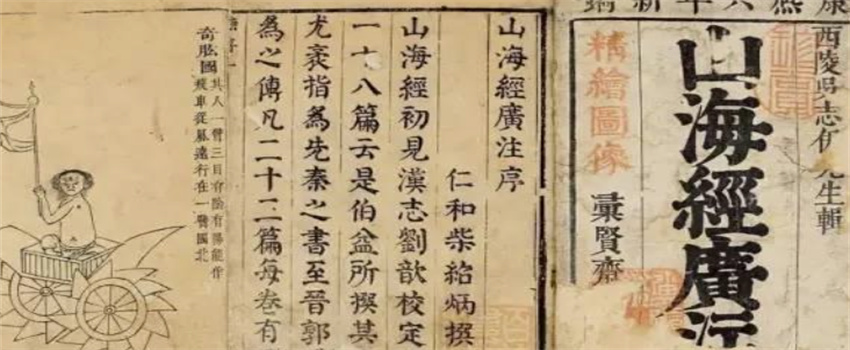 康熙六年新鐫
西陵吳志伊先生輯
山海經廣注
精繪圖像
彙賢齋
山海經廣注序
仁和柴紹炳撰
山海經初見漢志劉歆校定
一十八篇云是伯益所撰其
尤袤指為先秦之書至晉郭
為之傳凡二十二篇每卷有
奇肱國
其人一臂三目有陰有陽能作
飛車從風遠行在一臂國北